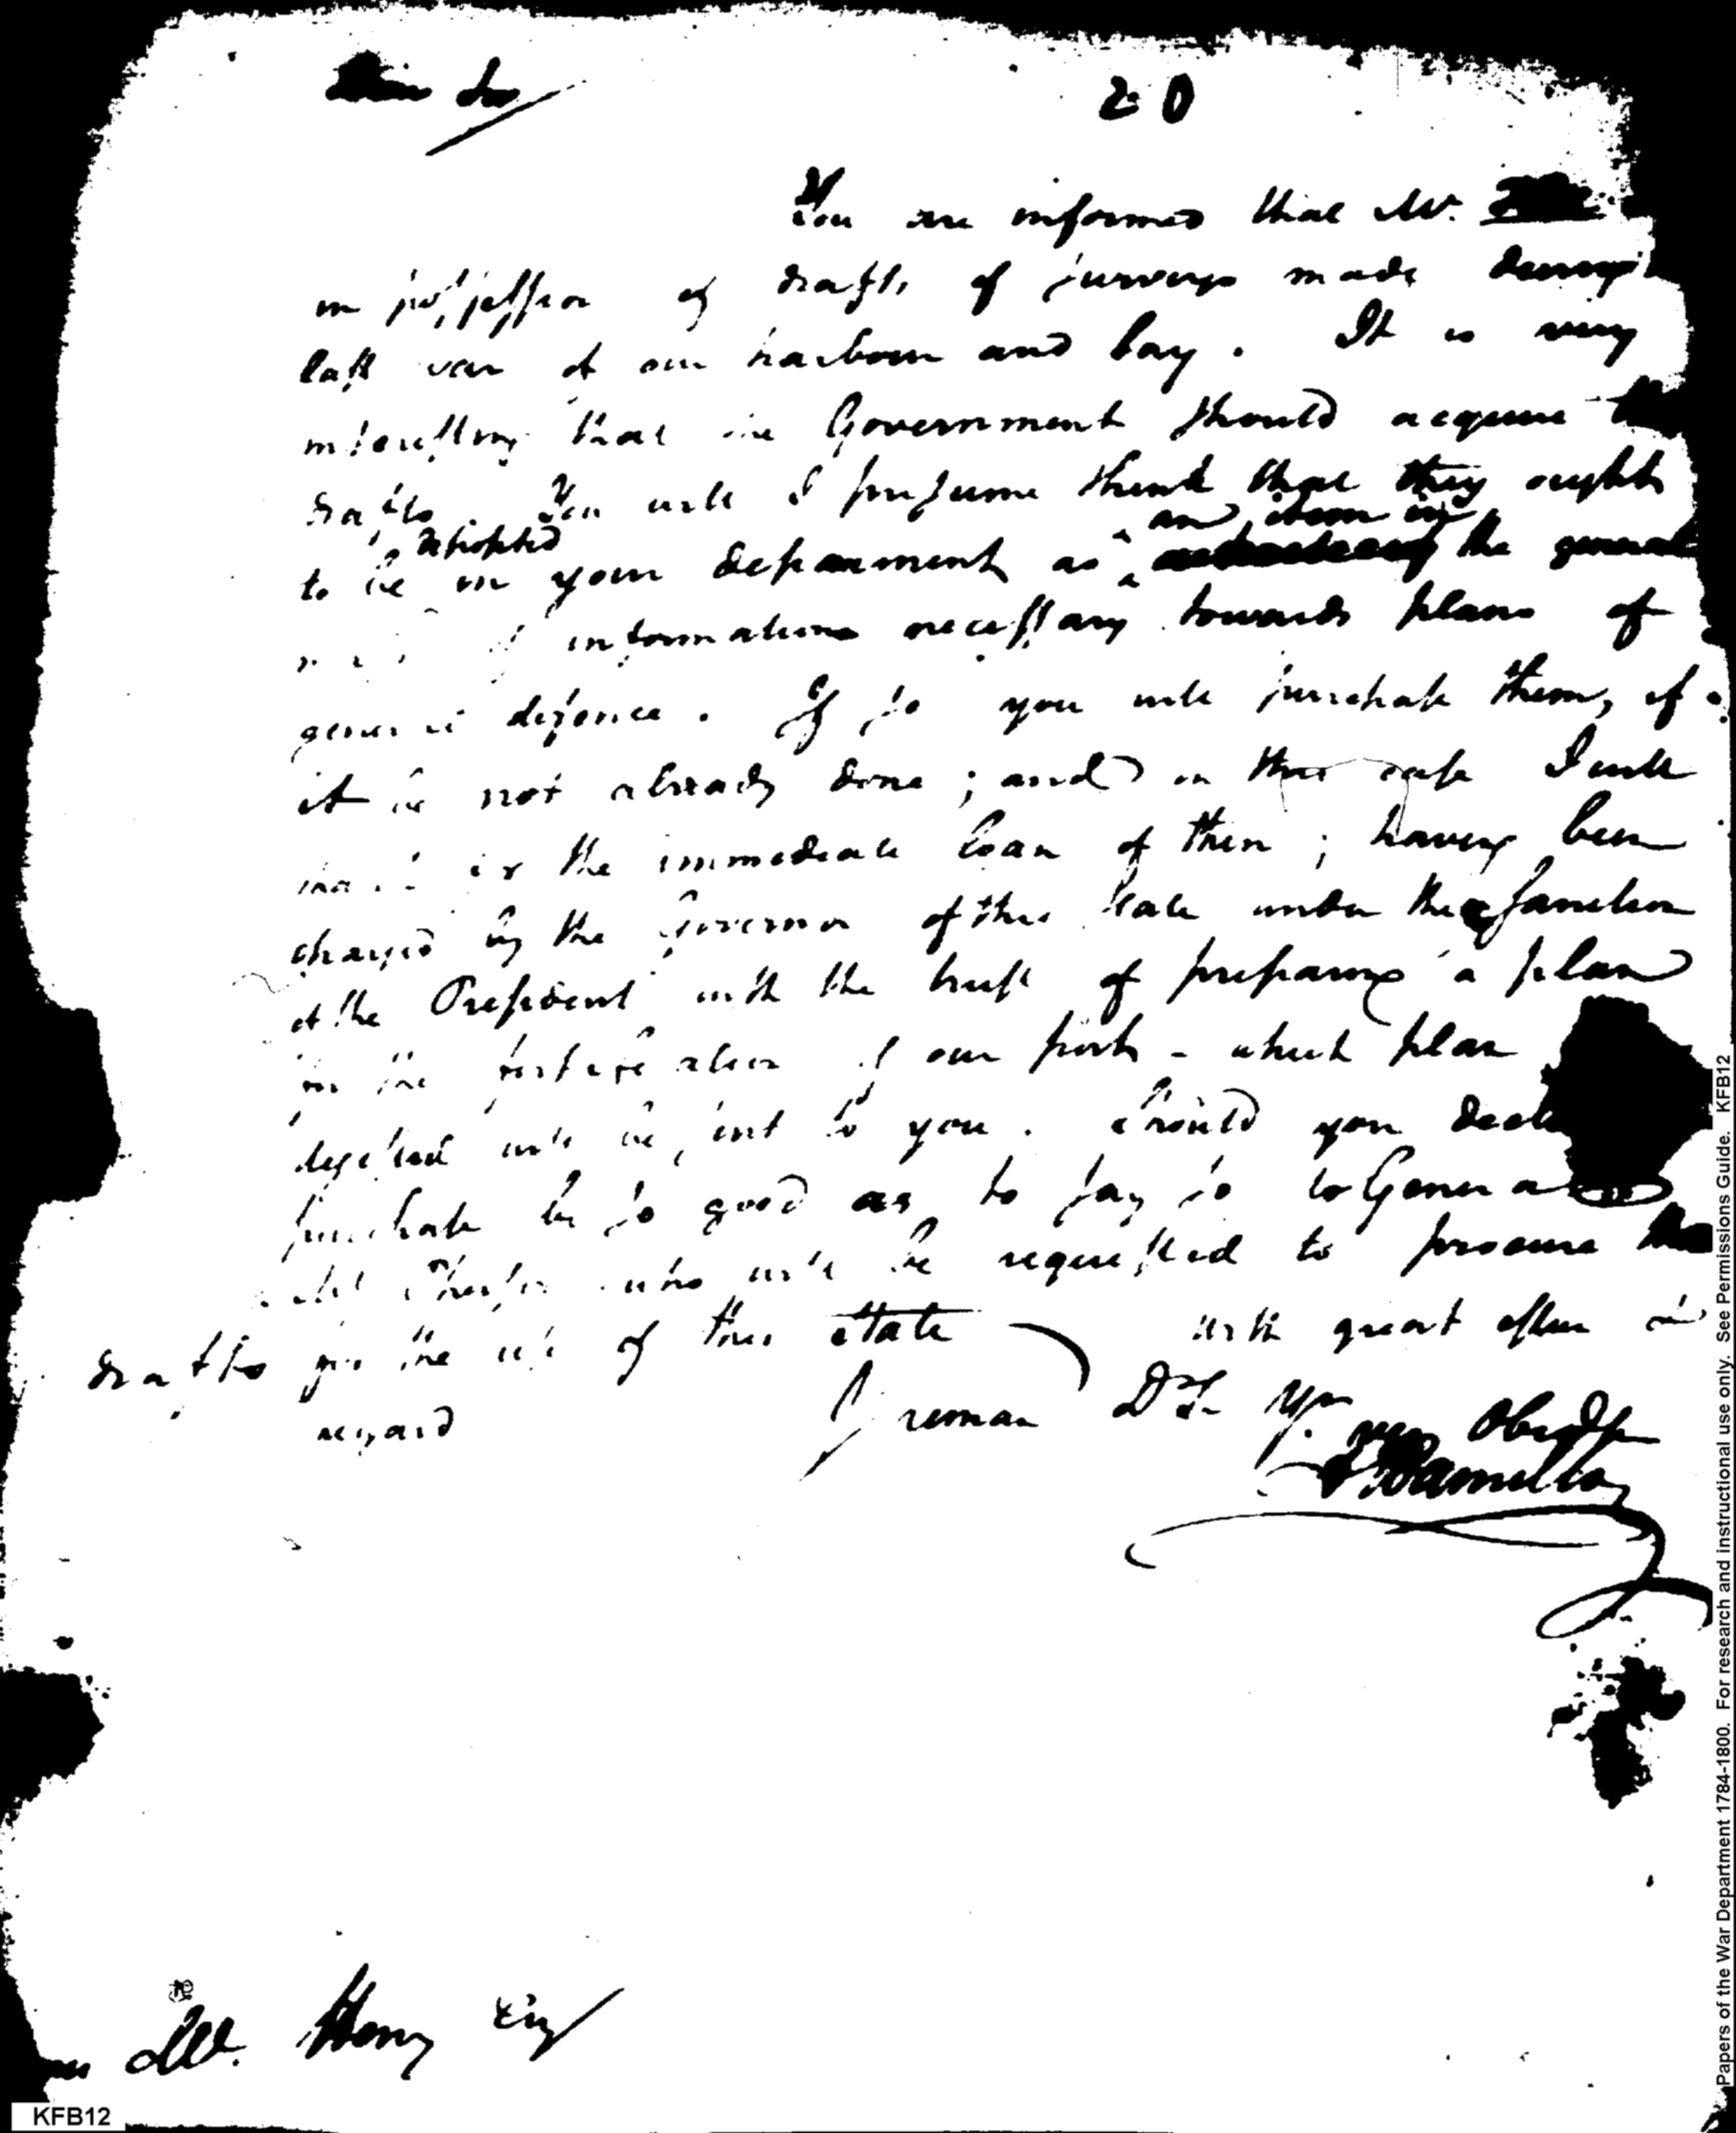 Dear Sir
20
You are informed that Mr.
in possession of drafts of surveys made during
last war of our harbour and bay. It is very
interesting that the Government should acquire
drafts. You will I presume think that they ought
deposited an item in
to be in your department as a the general
of informations necessary towards plans of
general defence. If so you will purchase them, if
it be not already done; and in this case I will
the immediate loan of them; having been
charged by the Governor of this state under the sanction
of the President with the trust of preparing a plan
for the fortification of our port - which plan
digested will be sent to you. Should you
purchase be so good as to say so to General
who will be requested to procure
drafts for the use of this state With great esteem &
regard I remain Dr Sr Yr
very Obed
A Hamilton
Mc. Henry Esq
KFB12
Papers of the War Department 1784-1800. For research and instructional use only. See Permissions Guide. KFB12